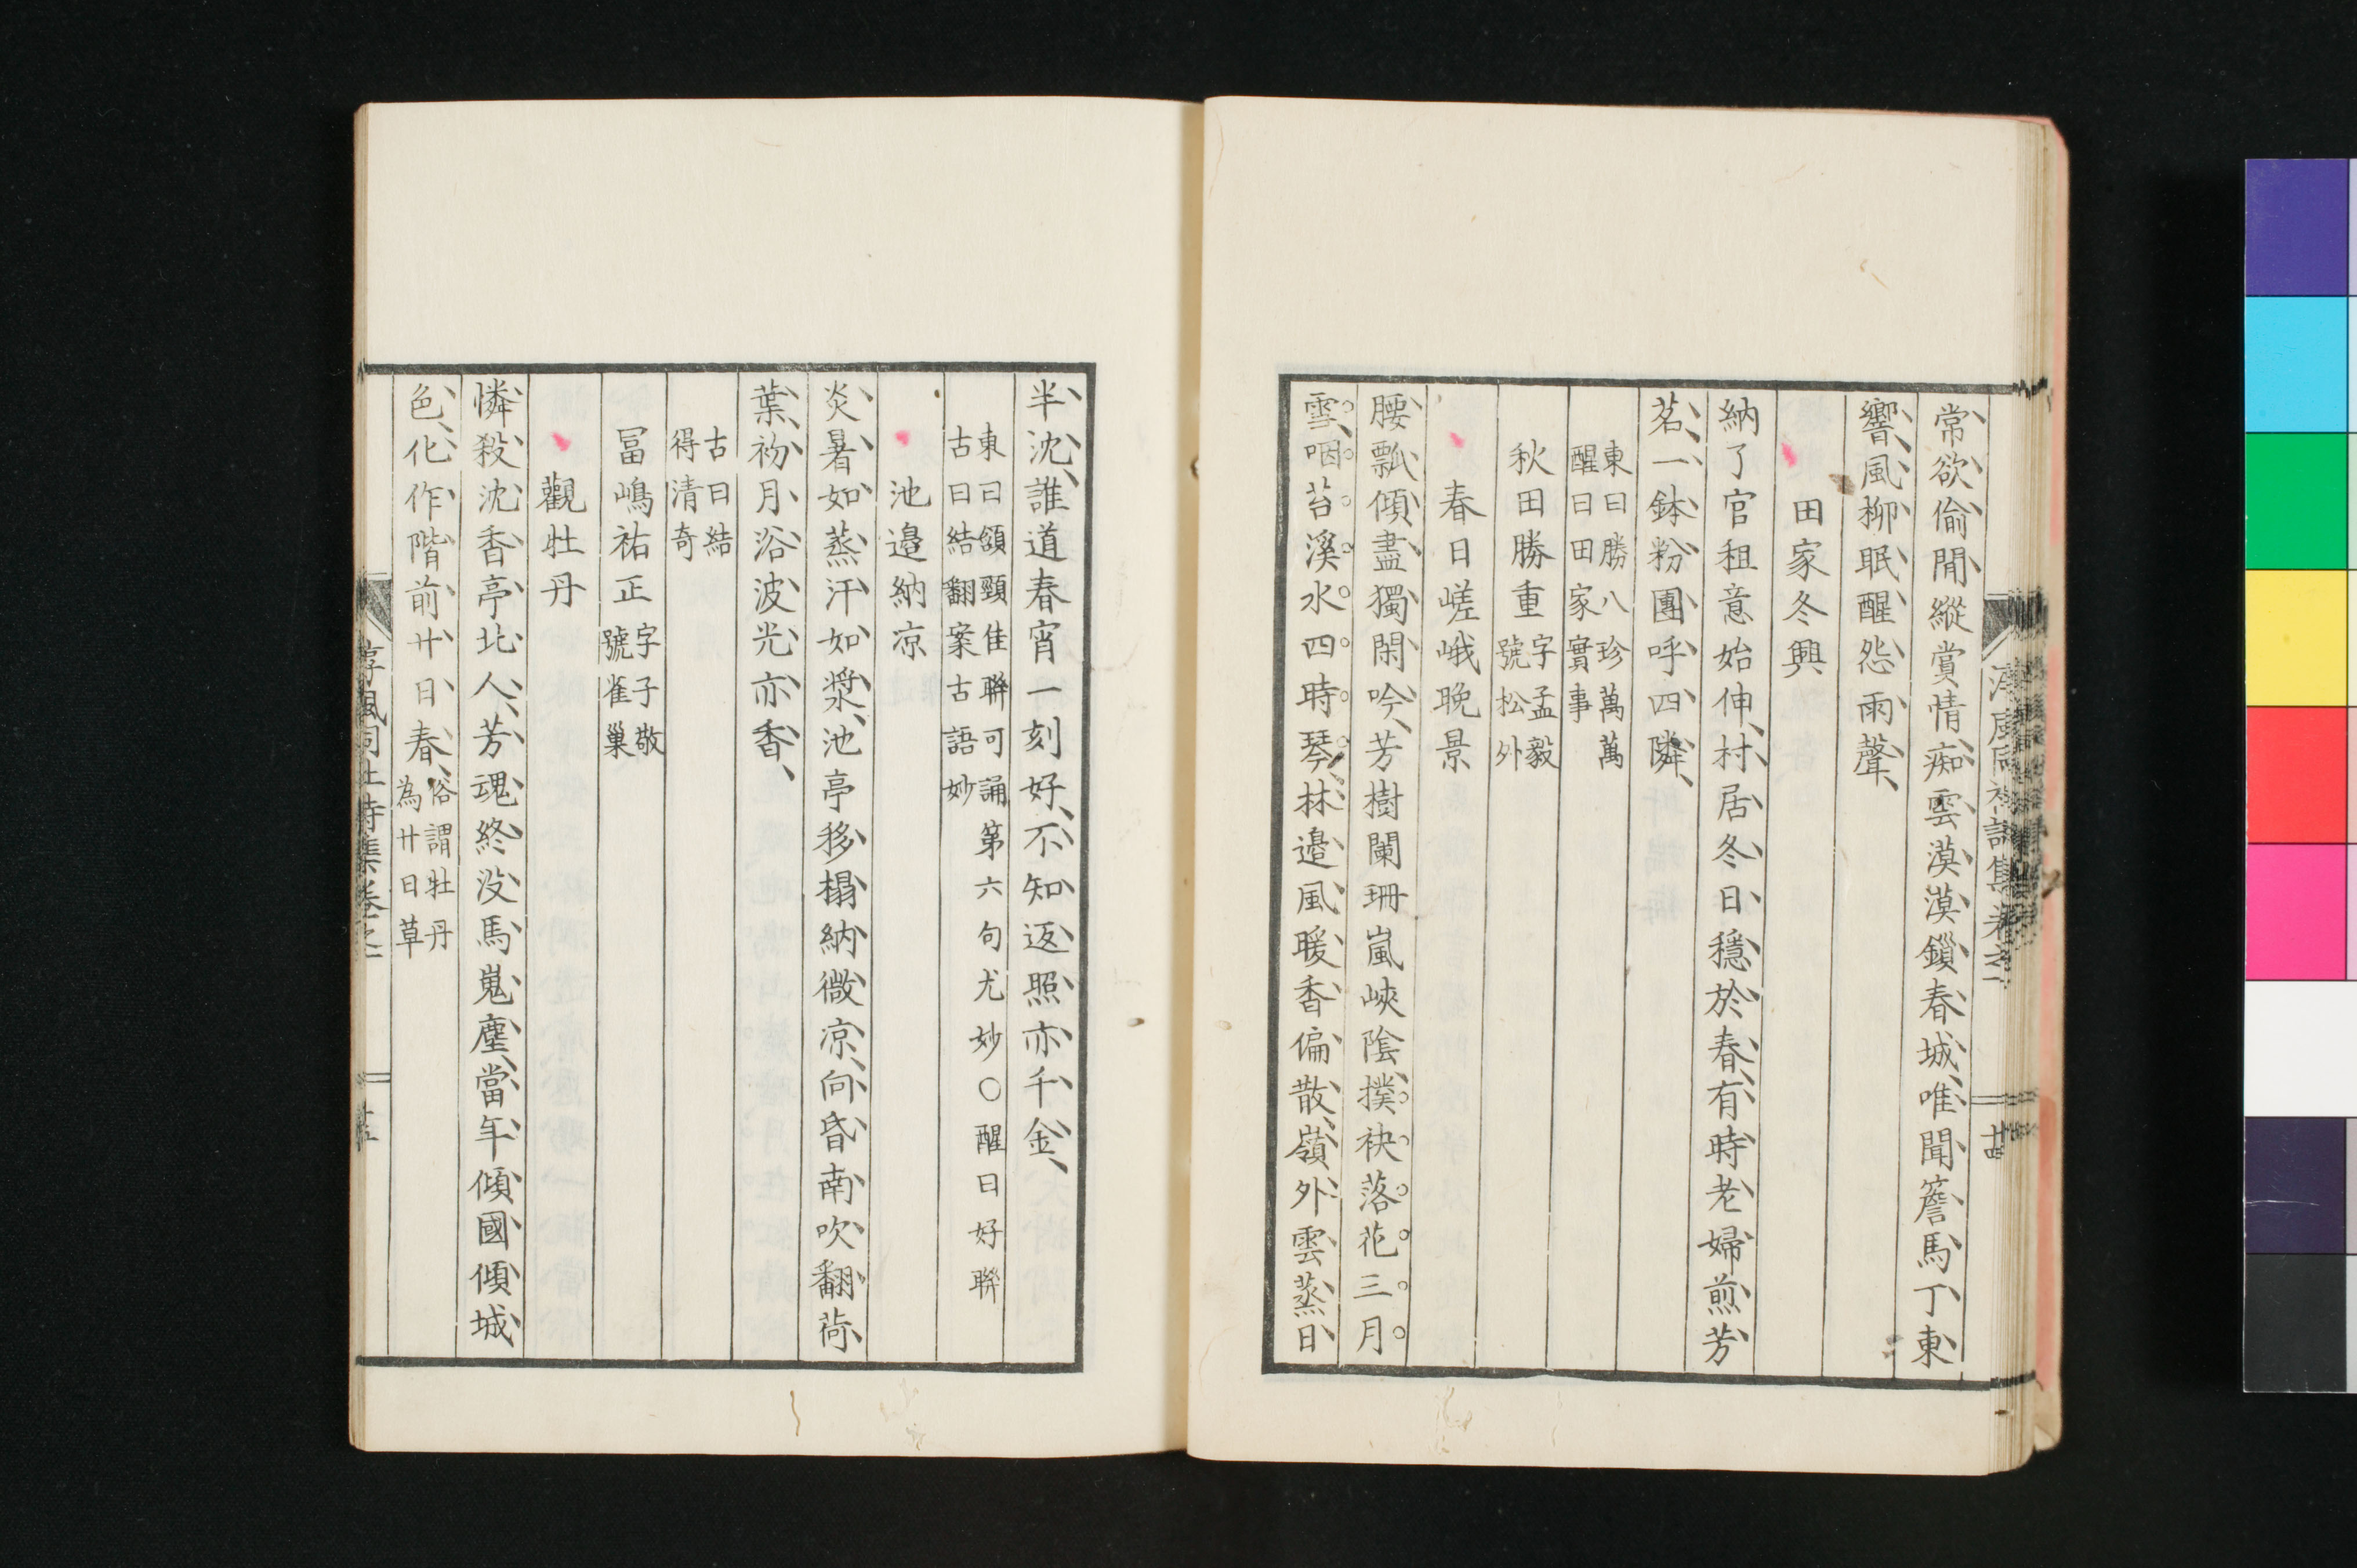 常欲偷閒縱賞情、痴雲漠漠鎖春城、唯聞簷馬丁東
響、風柳眠醒怨雨聲、
田家冬興
納了官租意始伸、村居冬日穩於春、有時老婦煎芳
茗、一鉢粉團呼四隣、
東曰勝八珍萬萬
醒曰田家實事
秋田勝重
字孟毅
號松外
春日嵯峨晚景
腰瓢傾盡獨閑吟、芳樹闌珊嵐峽陰、撲袂落花三月
雪、咽苔溪水四時琴、林邉風暖香偏散、嶺外雲蒸日
半沈、誰道春宵一刻好、不知返照亦千金、
東曰頷頸佳聯可誦第六句尤妙〇醒曰好聯
古曰結翻案古語妙
池邉納凉
炎暑如蒸汗如漿、池亭移榻納微凉、向昏南吹翻荷
葉、礿月浴波光亦香、
古曰結
得清奇
冨嶋祐正
字子敬
號雀巢
觀牡丹
憐殺沈香亭北人、芳魂終没馬嵬塵、當年傾國傾城
色、化作階前廿日春、
俗謂牡丹
為廿日草